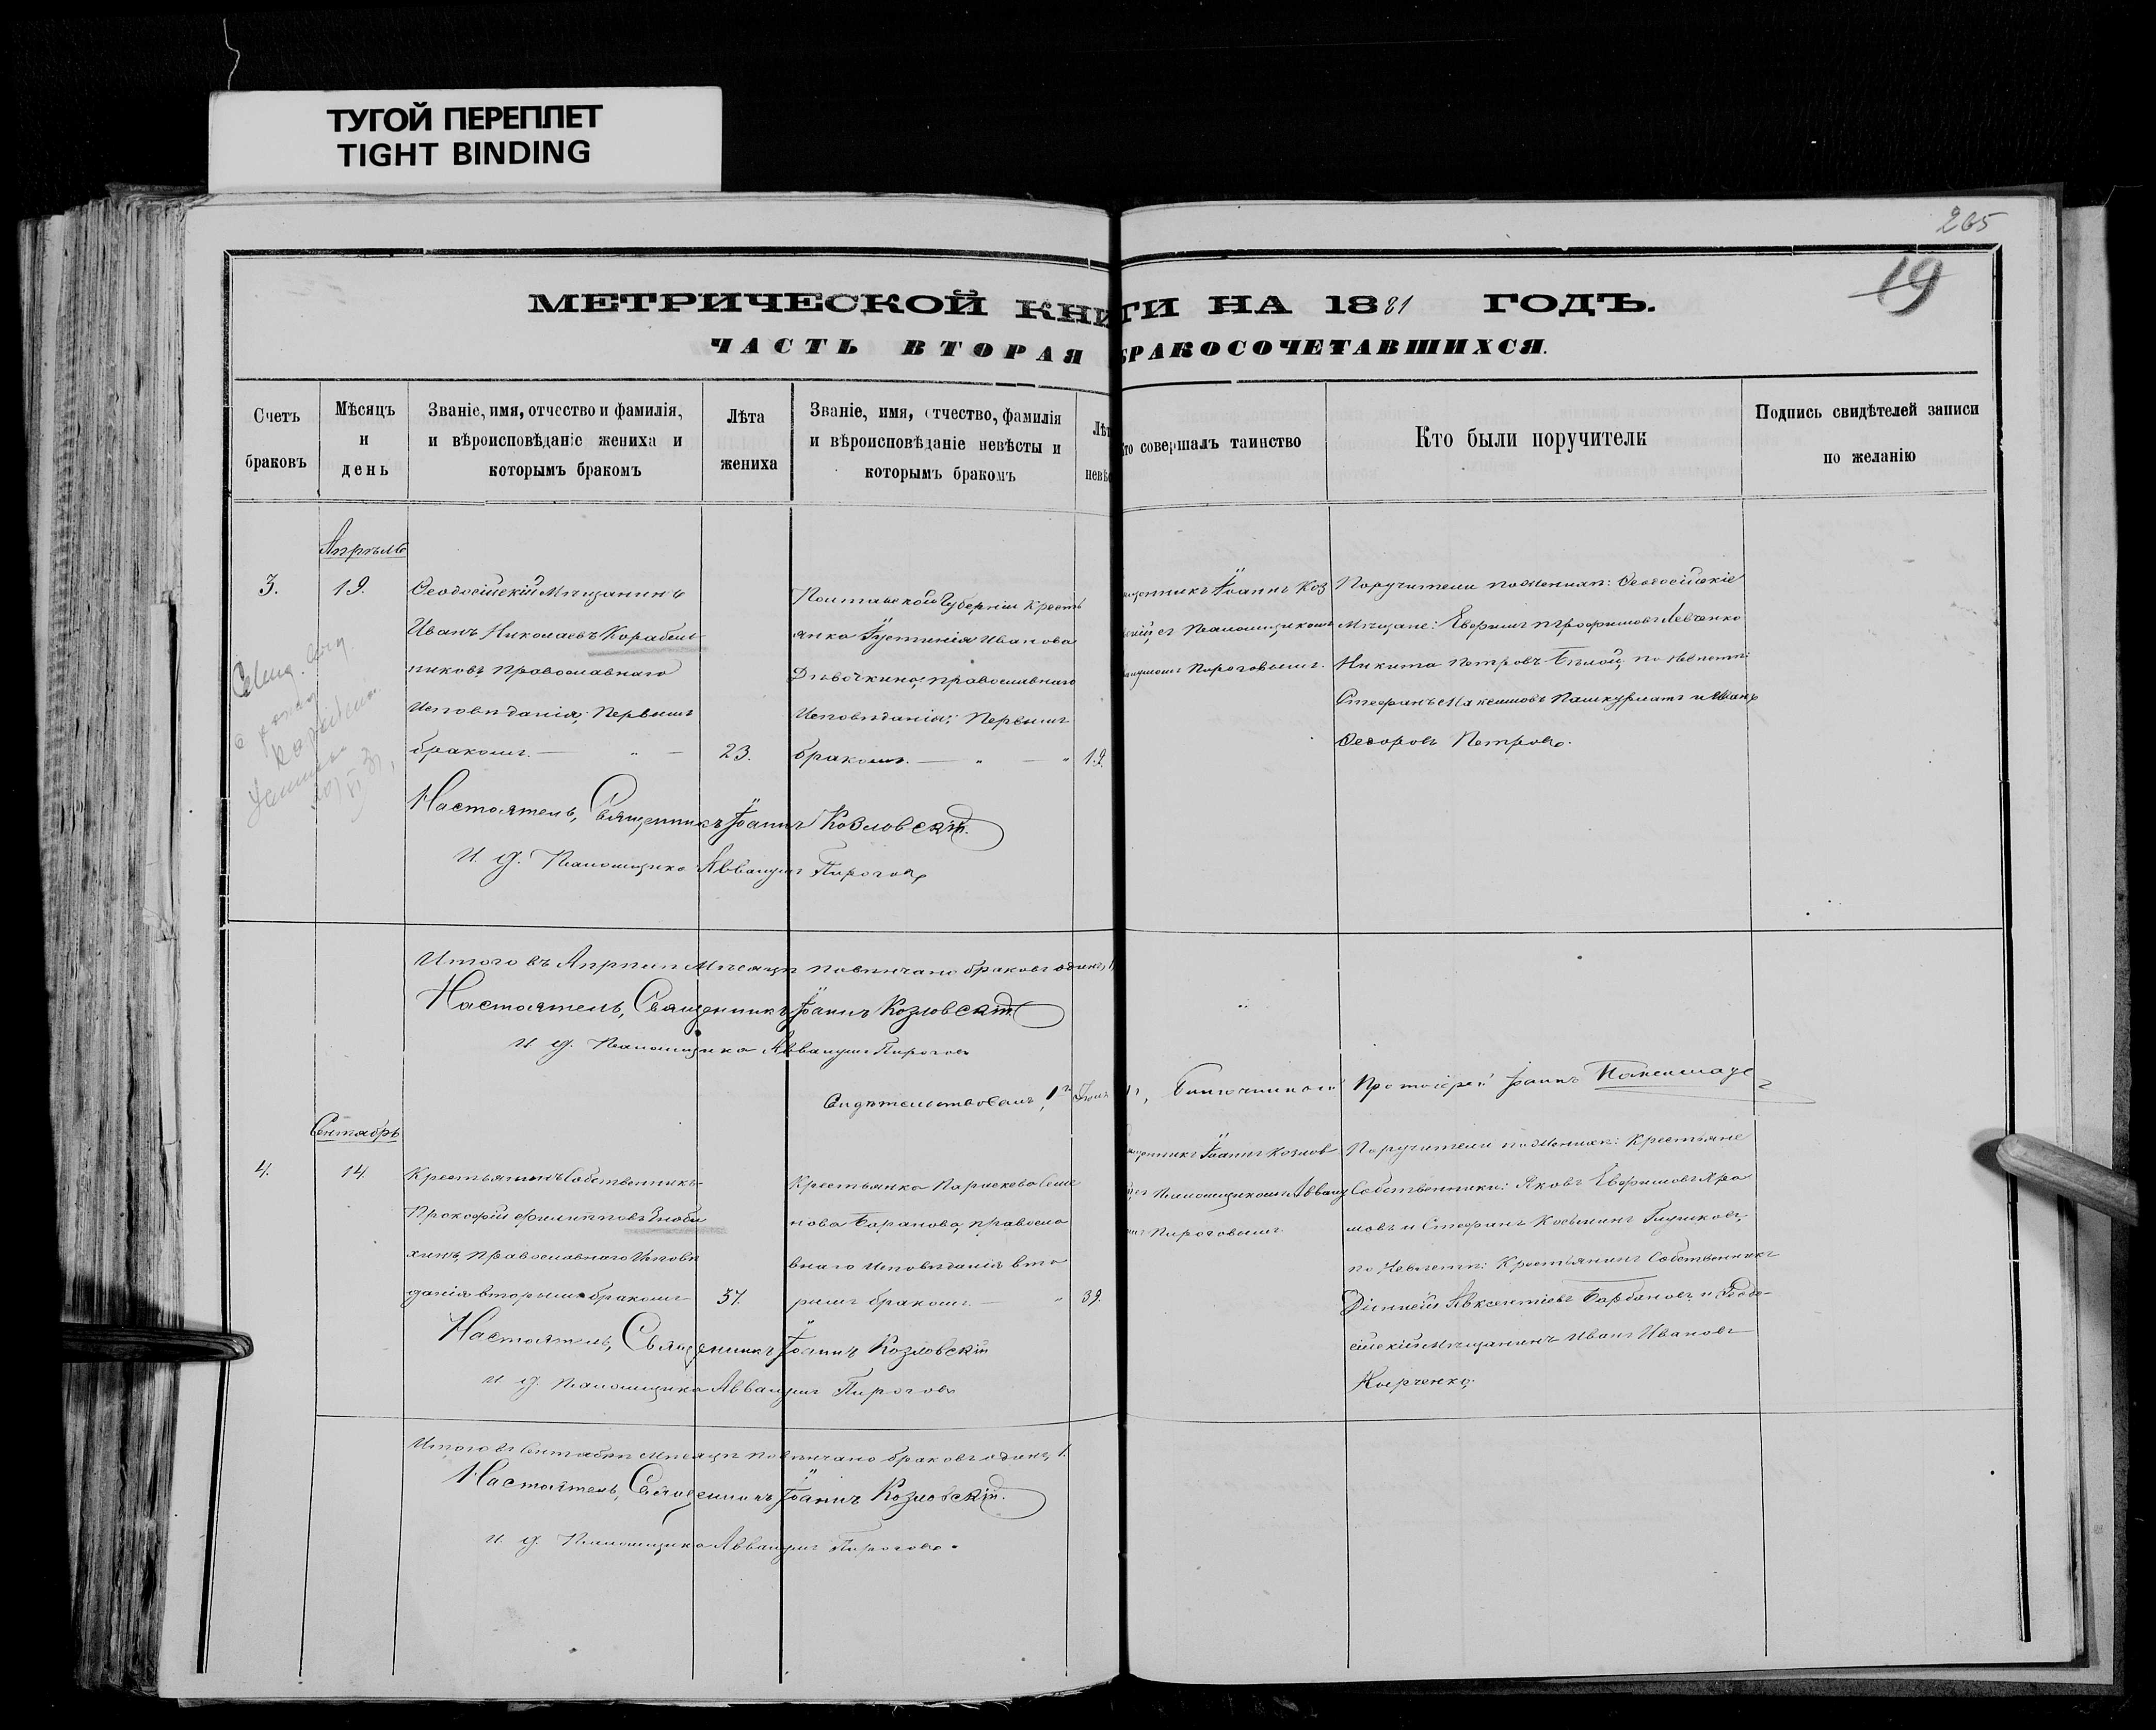 ТУГОЙ ПЕРЕПЛЕТ
TIGHT BINDING
265
19
МЕТРИЧЕСКОЙ КНИГИ НА 1881 ГОДЪ.
ЧАСТЬ ВТОРАЯ БРАКОСОЧЕТАВШИХСЯ.
Счетъ
браковъ
Мѣсяцъ
и
день
Званіе, имя, отчество и фамилія,
и вѣроисповѣданіе жениха и
которымъ бракомъ
Лѣта
жениха
Званіе, имя, отчество, фамилія
и вѣроисповѣданіе невѣсты и
которымъ бракомъ
Лѣт
невѣс
то совершалъ таинство
Кто были поручители
Подпись свидѣтелей записи
по желанію
Апрѣль
3.
19.
Ѳеодосійскій Мѣщанинъ
Иванъ Николаевъ Корабель
никовъ православнаго
Исповѣданія, Первымъ
бракомъ.
23.
Полтавской Губерніи Кресть
янка Іустинія Иванова
Дѣвочкина, православнаго
Исповѣданія, Первымъ
бракомъ.
19.
щенникъ Іоаннъ Коз
скій съ Псаломщикомъ
Пироговымъ.
Поручители по женихѣ: Ѳеодосійскіе
Мѣщане: Евфимъ Трофимовъ Левченко
Никита Петровъ Бѣлой, по невѣстѣ:
Стефанъ Максимовъ и Иванъ
Ѳедоровъ Петровъ.
Настоятель, Священникъ Іоаннъ Козловскій.
И. д. Псаломщика Аввакумъ Пироговъ
Итого въ Апрѣлѣ Мѣсяцѣ повѣнчано браковъ одинъ, 1
Настоятель, Священникъ Іоаннъ Козловскій
И. д. Псаломщика Аввакумъ Пироговъ
Свидѣтельствовалъ, 1го Благочинный Протоіерей Іоаннъ
Сентябрь
4.
14.
Крестьянинъ Собственникъ
Прокофій Филипповъ Зноби
хинъ, православнаго Исповѣ
данія вторымъ бракомъ
37.
Крестьянка Параскева Семе
нова Баранова, правосла
внаго Исповѣданія вто
рымъ бракомъ.
39.
щенникъ Іоаннъ Козлов
Псаломщикомъ Аввак
Пироговымъ.
Поручители по женихѣ: Крестьяне
Собственники: Яковъ Евфимовъ Хра
мовъ и Стефанъ Косьминъ
по Невѣстѣ: Крестьянинъ Собственникъ
Авксентіевъ и Ѳеодо-
сійскій Мѣщанинъ Иванъ Ивановъ
Настоятель, Священникъ Іоаннъ Козловскій
И. д. Псаломщика Аввакумъ Пироговъ
Итого въ Сентябрѣ Мѣсяцѣ повѣнчано браковъ одинъ, 1.
Настоятель, Священникъ Іоаннъ Козловскій.
И. д. Псаломщика Аввакумъ Пироговъ.